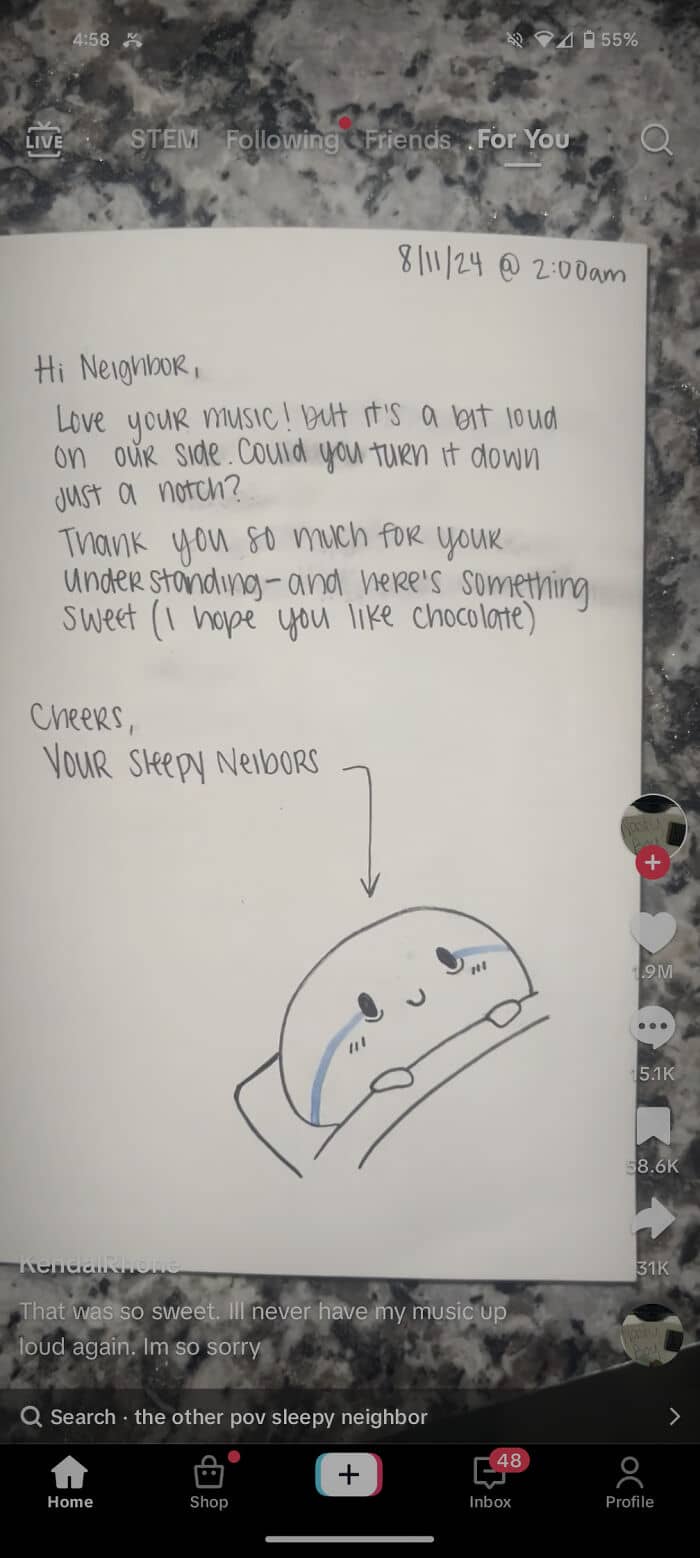 4:58
55%
LIVE
STEM Following Friends For You
8/11/24 @ 2:00am
Hi Neighbor,
Love your music! but it's a bit loud
on our side. Could you turn it down
just a notch?
Thank you so much for your
understanding - and here's something
sweet (I hope you like chocolate)
Cheers,
Your Sleepy Neibors
1.9M
15.1K
58.6K
31K
KendalRhone
That was so sweet. Ill never have my music up
loud again. Im so sorry
Search · the other pov sleepy neighbor
48
Home Shop Inbox Profile